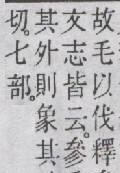 故毛以伐釋
文志皆云。參
其外則象其
切。七部。